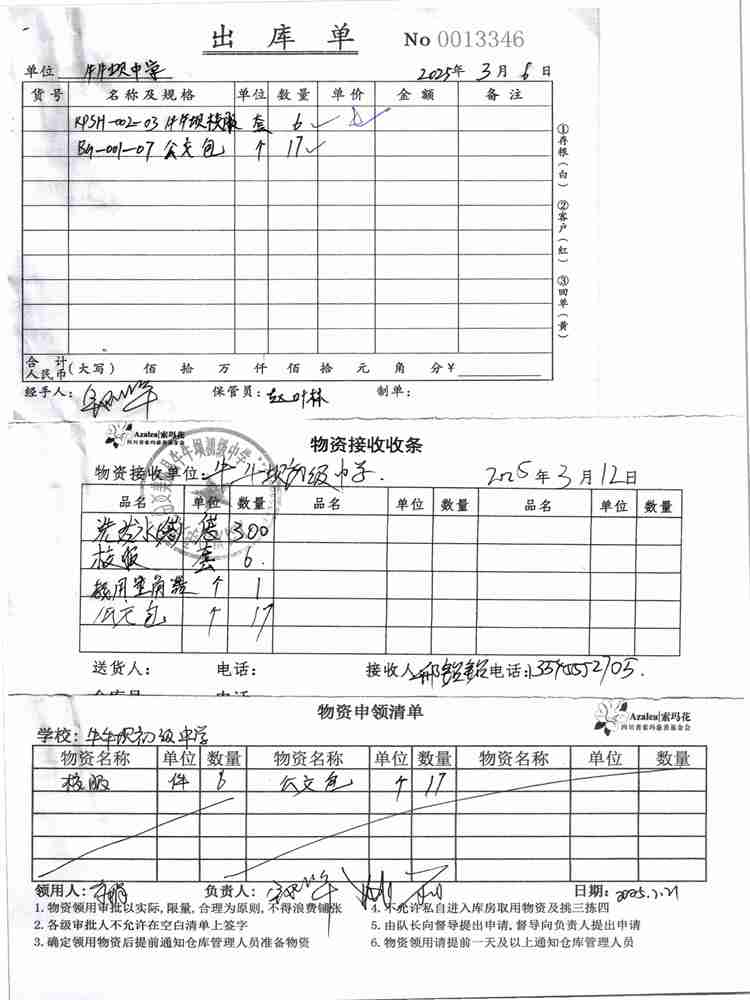 出库单 No 0013346
单位 牛牛坝中学 2025年 3月 6日
货号 名称及规格 单位 数量 单价 金额 备注
牛牛坝校服 套 6
公文包 个 17
①存根(白) ②客户(红) ③回单(黄)
合计人民币(大写) 佰 拾 万 仟 佰 拾 元 角 分 ¥
经手人: 保管员: 制单:
Azalea|索玛花
四川省索玛慈善基金会
物资接收收条
物资接收单位: 牛牛坝初级中学. 2025年3月12日
品名 单位 数量 品名 单位 数量 品名 单位 数量
袋 300
校服 套 6.
个 1
包 个 17
送货人: 电话: 接收人 电话:
物资申领清单
Azalea|索玛花
四川省索玛慈善基金会
学校: 牛牛坝初级中学
物资名称 单位 数量 物资名称 单位 数量 物资名称 单位 数量
校服 件 6 公文包 个 17
领用人: 负责人: 日期: 2025.2.21
1. 物资领用审批以实际,限量,合理为原则,不得浪费铺张 4. 不允许私自进入库房取用物资及挑三拣四
2. 各级审批人不允许在空白清单上签字 5. 由队长向督导提出申请,督导向负责人提出申请
3. 确定领用物资后提前通知仓库管理人员准备物资 6. 物资领用请提前一天及以上通知仓库管理人员